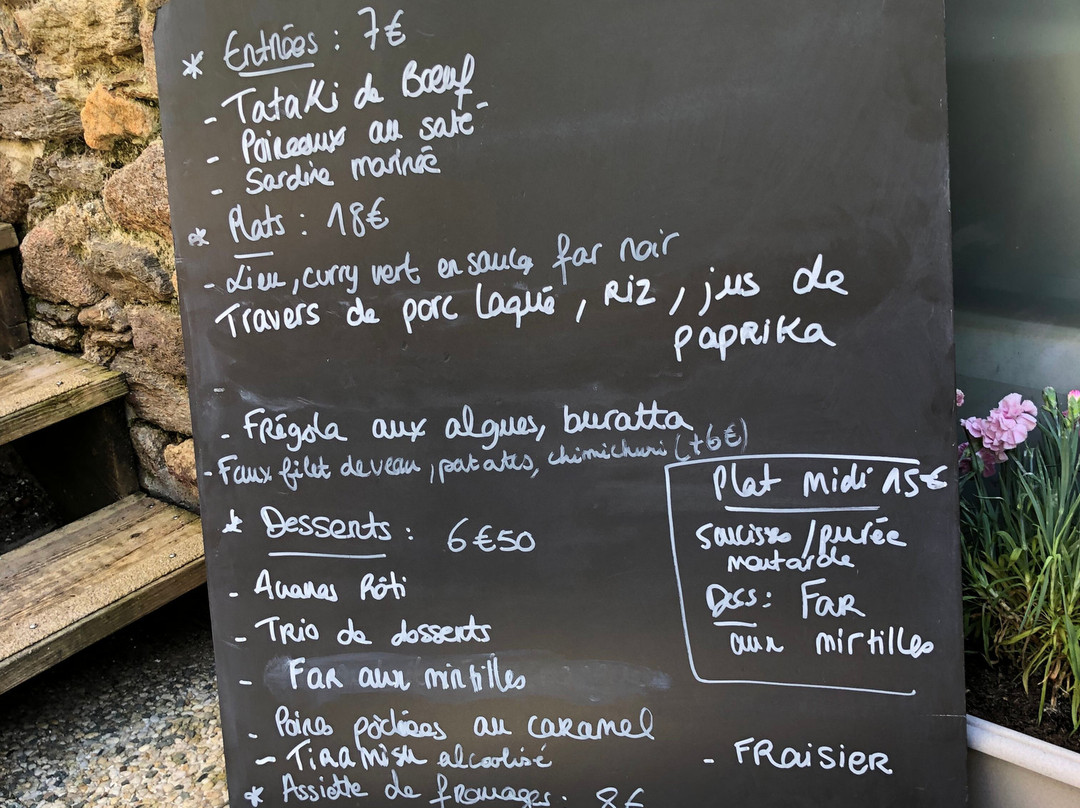 * Entrées : 7€
- Tataki de Bœuf
- Poireaux au saté
- Sardine marinée
* Plats : 18€
- Lieu, curry vert en sauce, far noir
Travers de porc laqué, riz, jus de
paprika
-
- Frégola aux algues, buratta
- Faux filet de veau, patates, chimichuri (+6€)
Plat midi 15€
Saucisse / purée
moutarde
Dess: Far
aux mirtilles
* Desserts : 6€50
- Ananas Rôti
- Trio de desserts
- Far aux mirtilles
- Poires pochées au caramel
- Tiramisu alcoolisé
- Fraisier
* Assiette de fromages. 8€